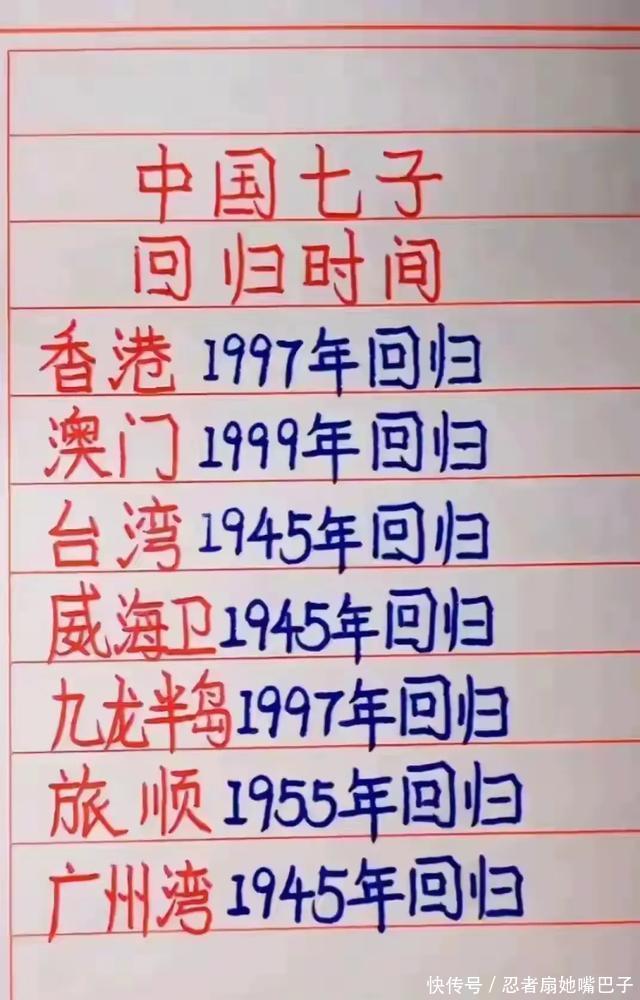 中国七子
回归时间
香港 1997年回归
澳门 1999年回归
台湾 1945年回归
威海卫 1945年回归
九龙半岛 1997年回归
旅顺 1955年回归
广州湾 1945年回归
快传号 / 忍者扇她嘴巴子